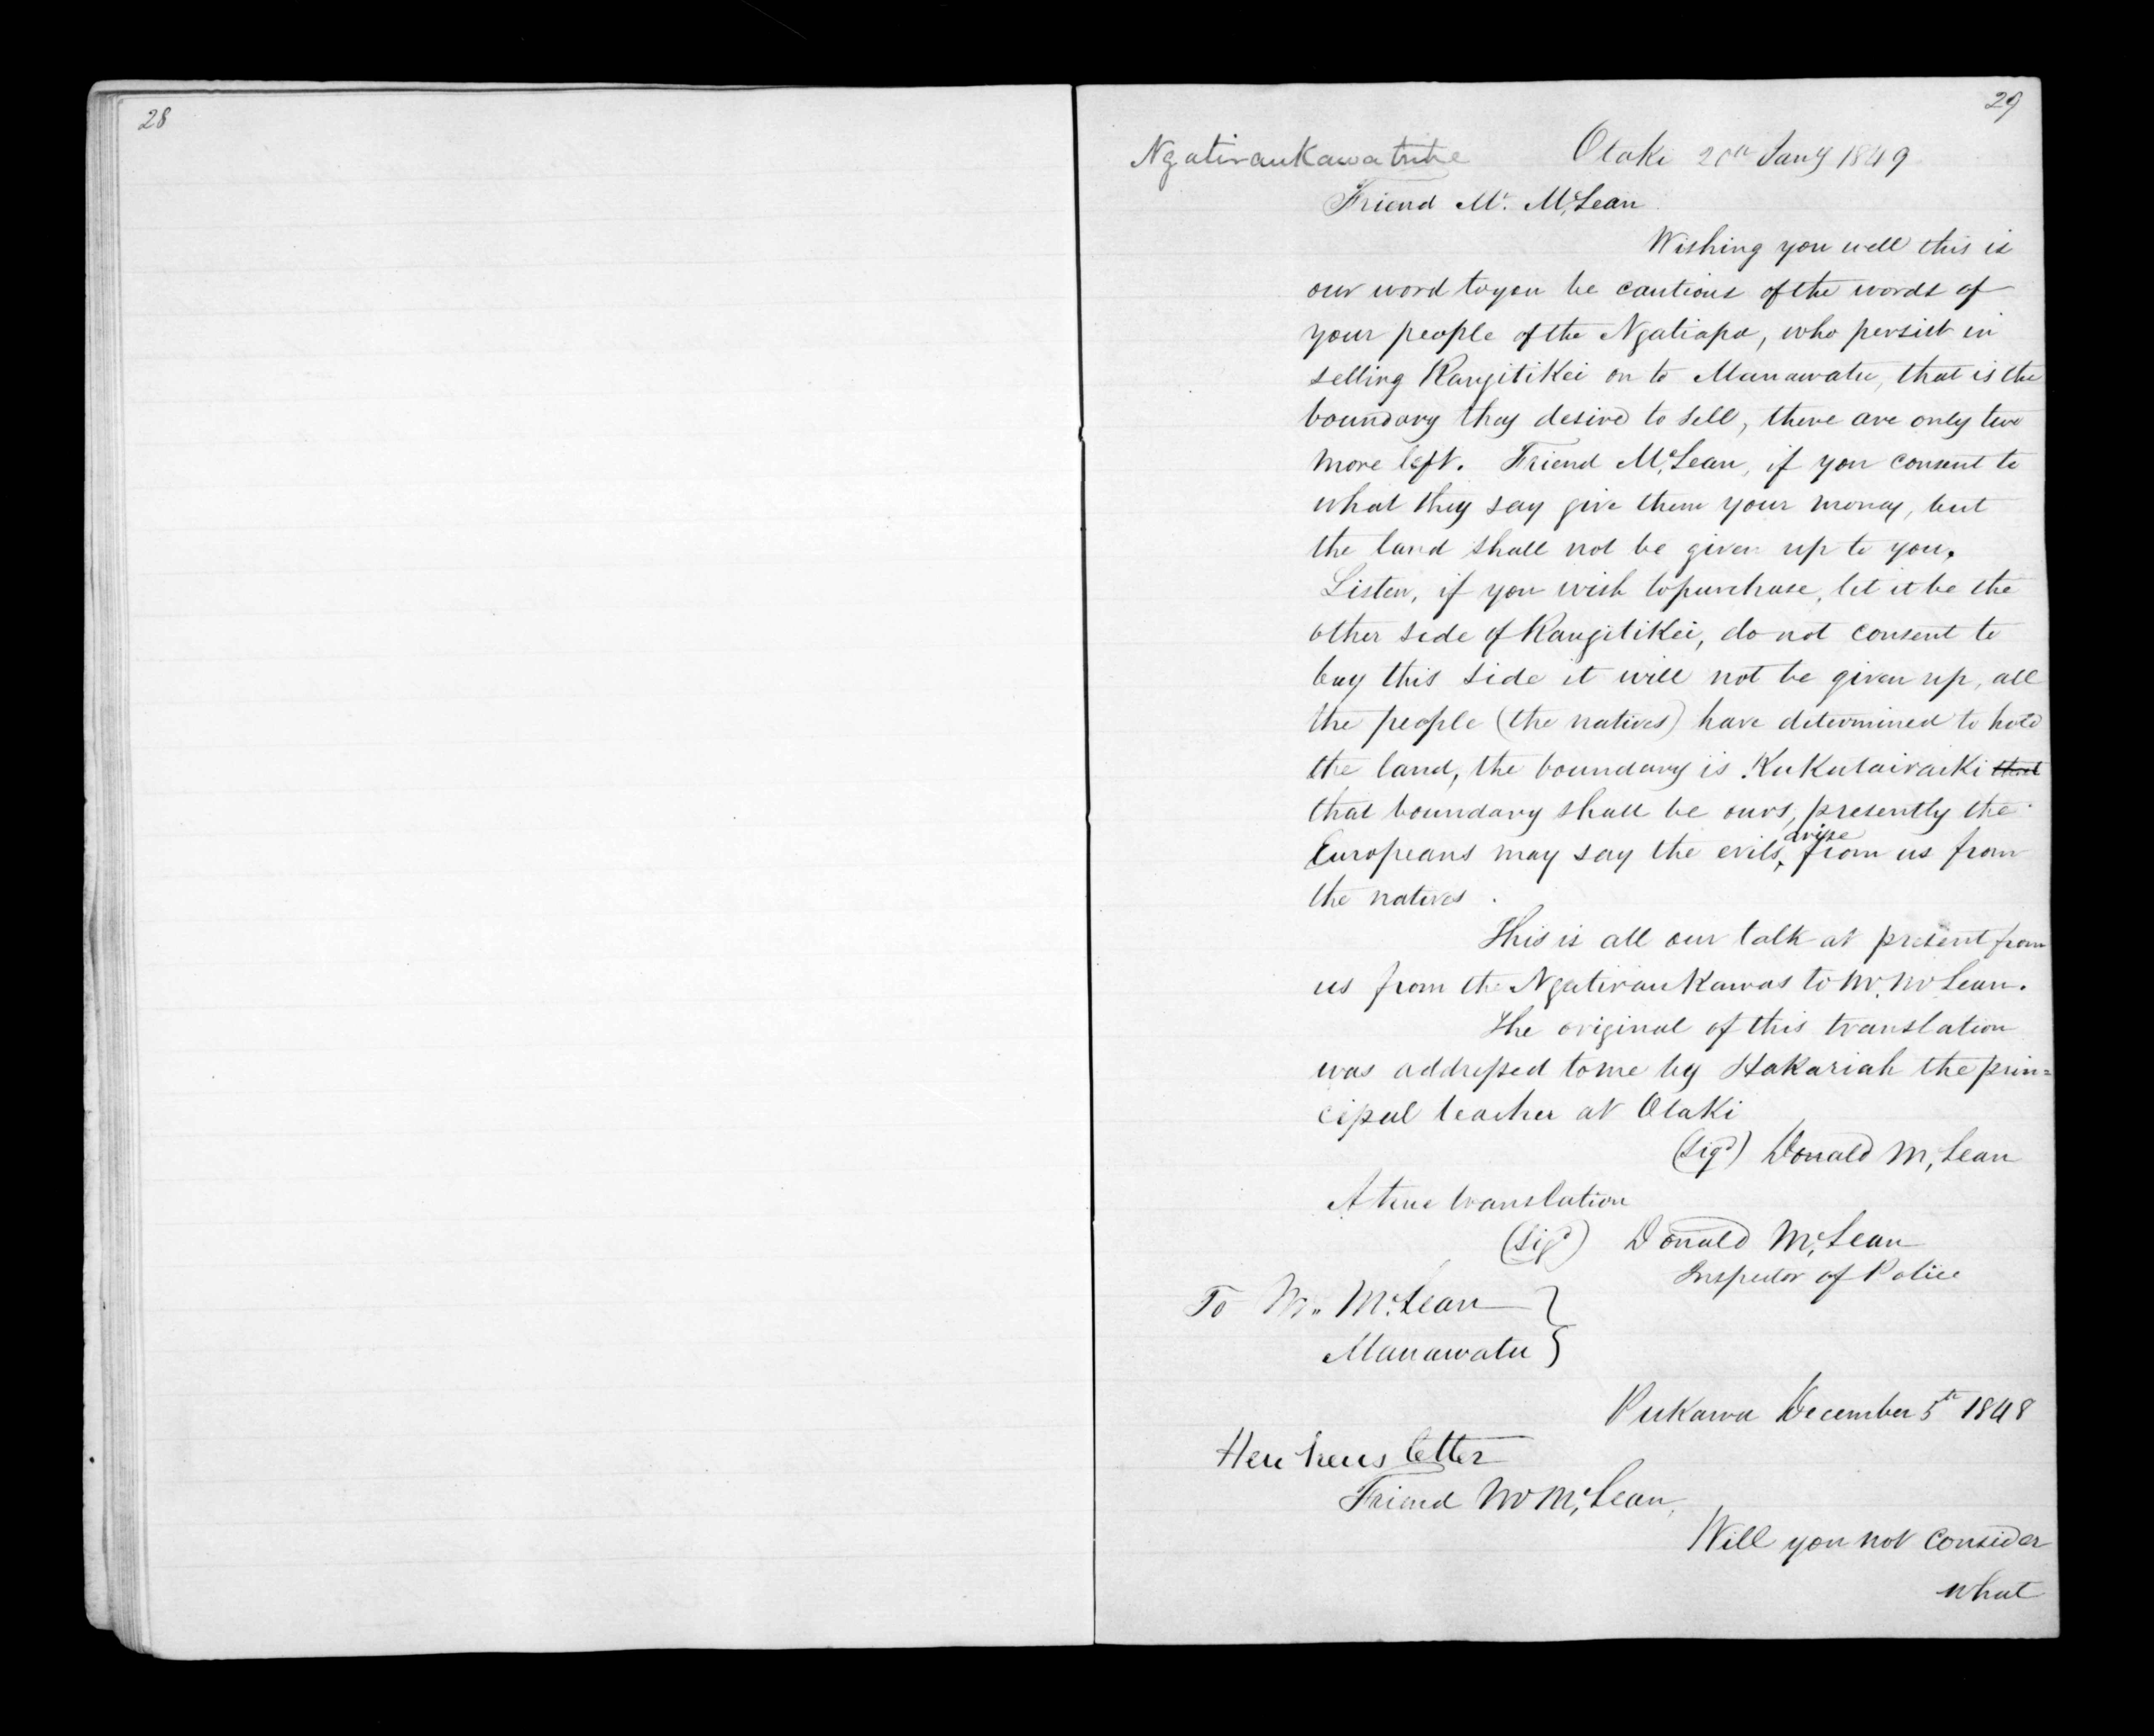 28
29
Ngatiraukawa tribe Otaki 20th Jany 1849
Friend Mr. McLean
Wishing you well this is
our word to you be cautious of the words of
your people of the Ngatiapa, who persist in
selling Rangitikei on to Manawatu, that is the
boundary they desire to sell, there are only two
more left. Friend McLean, if you consent to
what they say give them your money, but
the land shall not be given up to you.
Listen, if you wish to purchase, let it be the
other side of Rangitikei, do not consent to
buy this side it will not be given up, all
the people (the natives) have determined to hold
the land, the boundary is Kukutairaiki that
that boundary shall be ours, presently the
Europeans may say the evils arise from us from
the natives.
This is all our talk at present from
us from the Ngatiraukawas to Mr. McLean.
The original of this translation
was addressed to me by Hakariah the prin=
cipal teacher at Otaki
(Sigd) Donald McLean
A true translation
(Sigd) Donald McLean
Inspector of Police
To Mr. McLean
Manawatu
Pukawa December 5th 1848
Heu heus letter
Friend Mr McLean,
Will you not consider
what